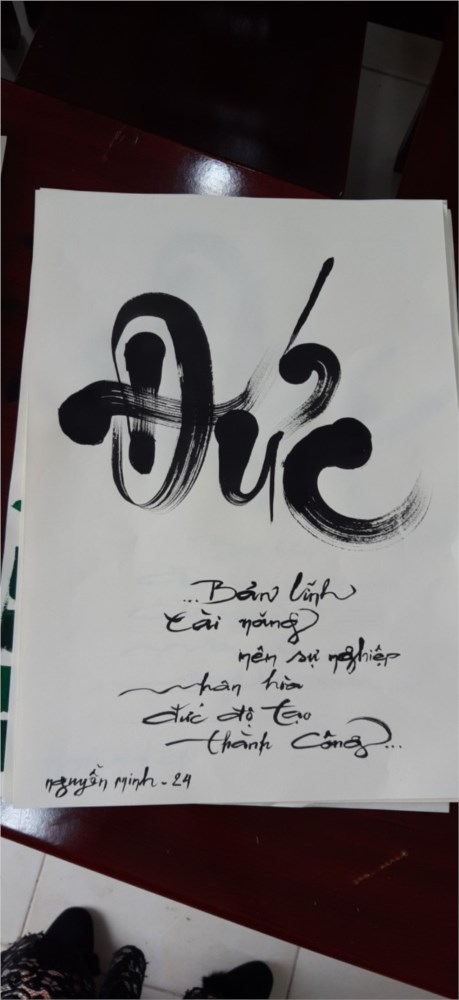 Đức
...Bản lĩnh
tài năng
nên sự nghiệp
nhân hòa
đức độ tạo
thành công...
nguyễn minh - 24